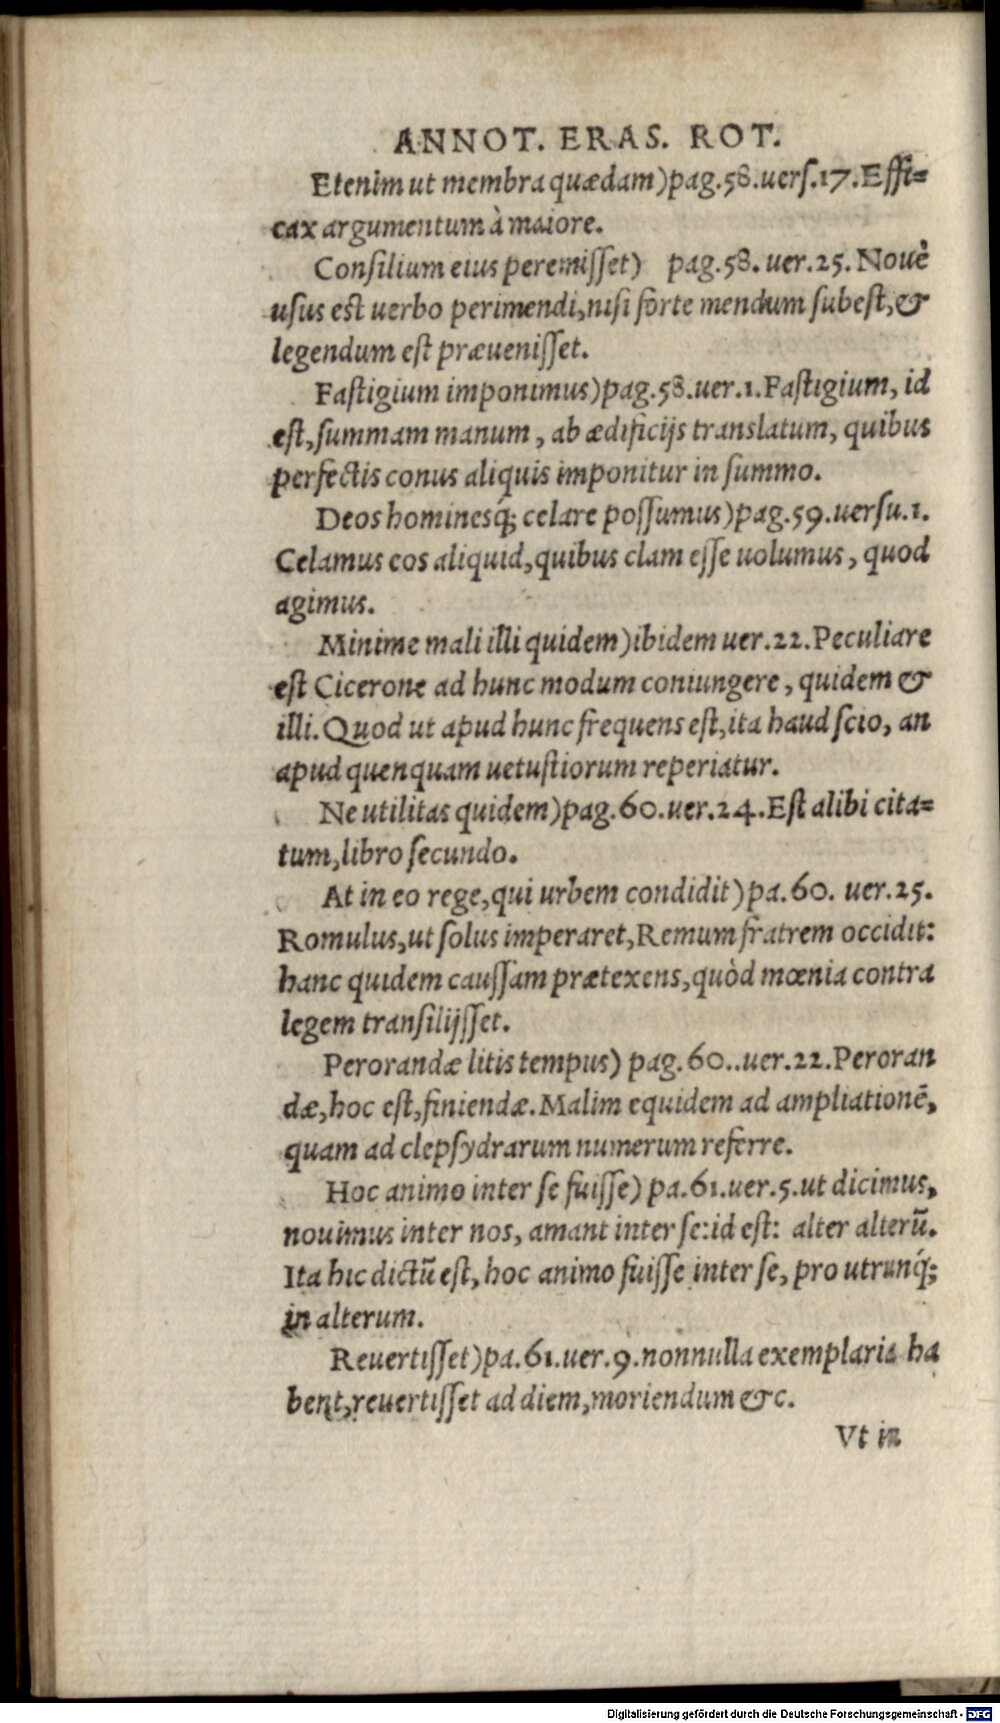 ANNOT. ERAS. ROT.
Etenim ut membra quædam) pag. 58. uerſ. 17. Effi=
cax argumentum à maiore.
Conſilium eius peremiſſet) pag. 58. uer. 25. Nouè
uſus eſt uerbo perimendi, niſi forte mendum ſubeſt, &
legendum eſt præueniſſet.
Faſtigium imponimus) pag. 58. uer. 1. Faſtigium, id
eſt, ſummam manum, ab ædificijs translatum, quibus
perfectis conus aliquis imponitur in ſummo.
Deos hominesq́; celare poſſumus) pag. 59. uerſu. 1.
Celamus eos aliquid, quibus clam eſſe uolumus, quod
agimus.
Minime mali illi quidem) ibidem uer. 22. Peculiare
eſt Cicerone ad hunc modum coniungere, quidem &
illi. Quod ut apud hunc frequens eſt, ita haud ſcio, an
apud quenquam uetuſtiorum reperiatur.
Ne utilitas quidem) pag. 60. uer. 24. Eſt alibi cita=
tum, libro ſecundo.
At in eo rege, qui urbem condidit) pa. 60. uer. 25.
Romulus, ut ſolus imperaret, Remum fratrem occidit:
hanc quidem cauſſam prætexens, quòd mœnia contra
legem tranſilijſſet.
Perorandæ litis tempus) pag. 60.. uer. 22. Peroran
dæ, hoc eſt, finiendæ. Malim equidem ad ampliationē,
quam ad clepſydrarum numerum referre.
Hoc animo inter ſe fuiſſe) pa. 61. uer. 5. ut dicimus,
nouimus inter nos, amant inter ſe: id eſt: alter alterū.
Ita hic dictū eſt, hoc animo fuiſſe inter ſe, pro utrunq́;
in alterum.
Reuertiſſet) pa. 61. uer. 9. nonnulla exemplaria ha
bent, reuertiſſet ad diem, moriendum &c.
Vt in
Digitalisierung gefördert durch die Deutsche Forschungsgemeinschaft - DFG